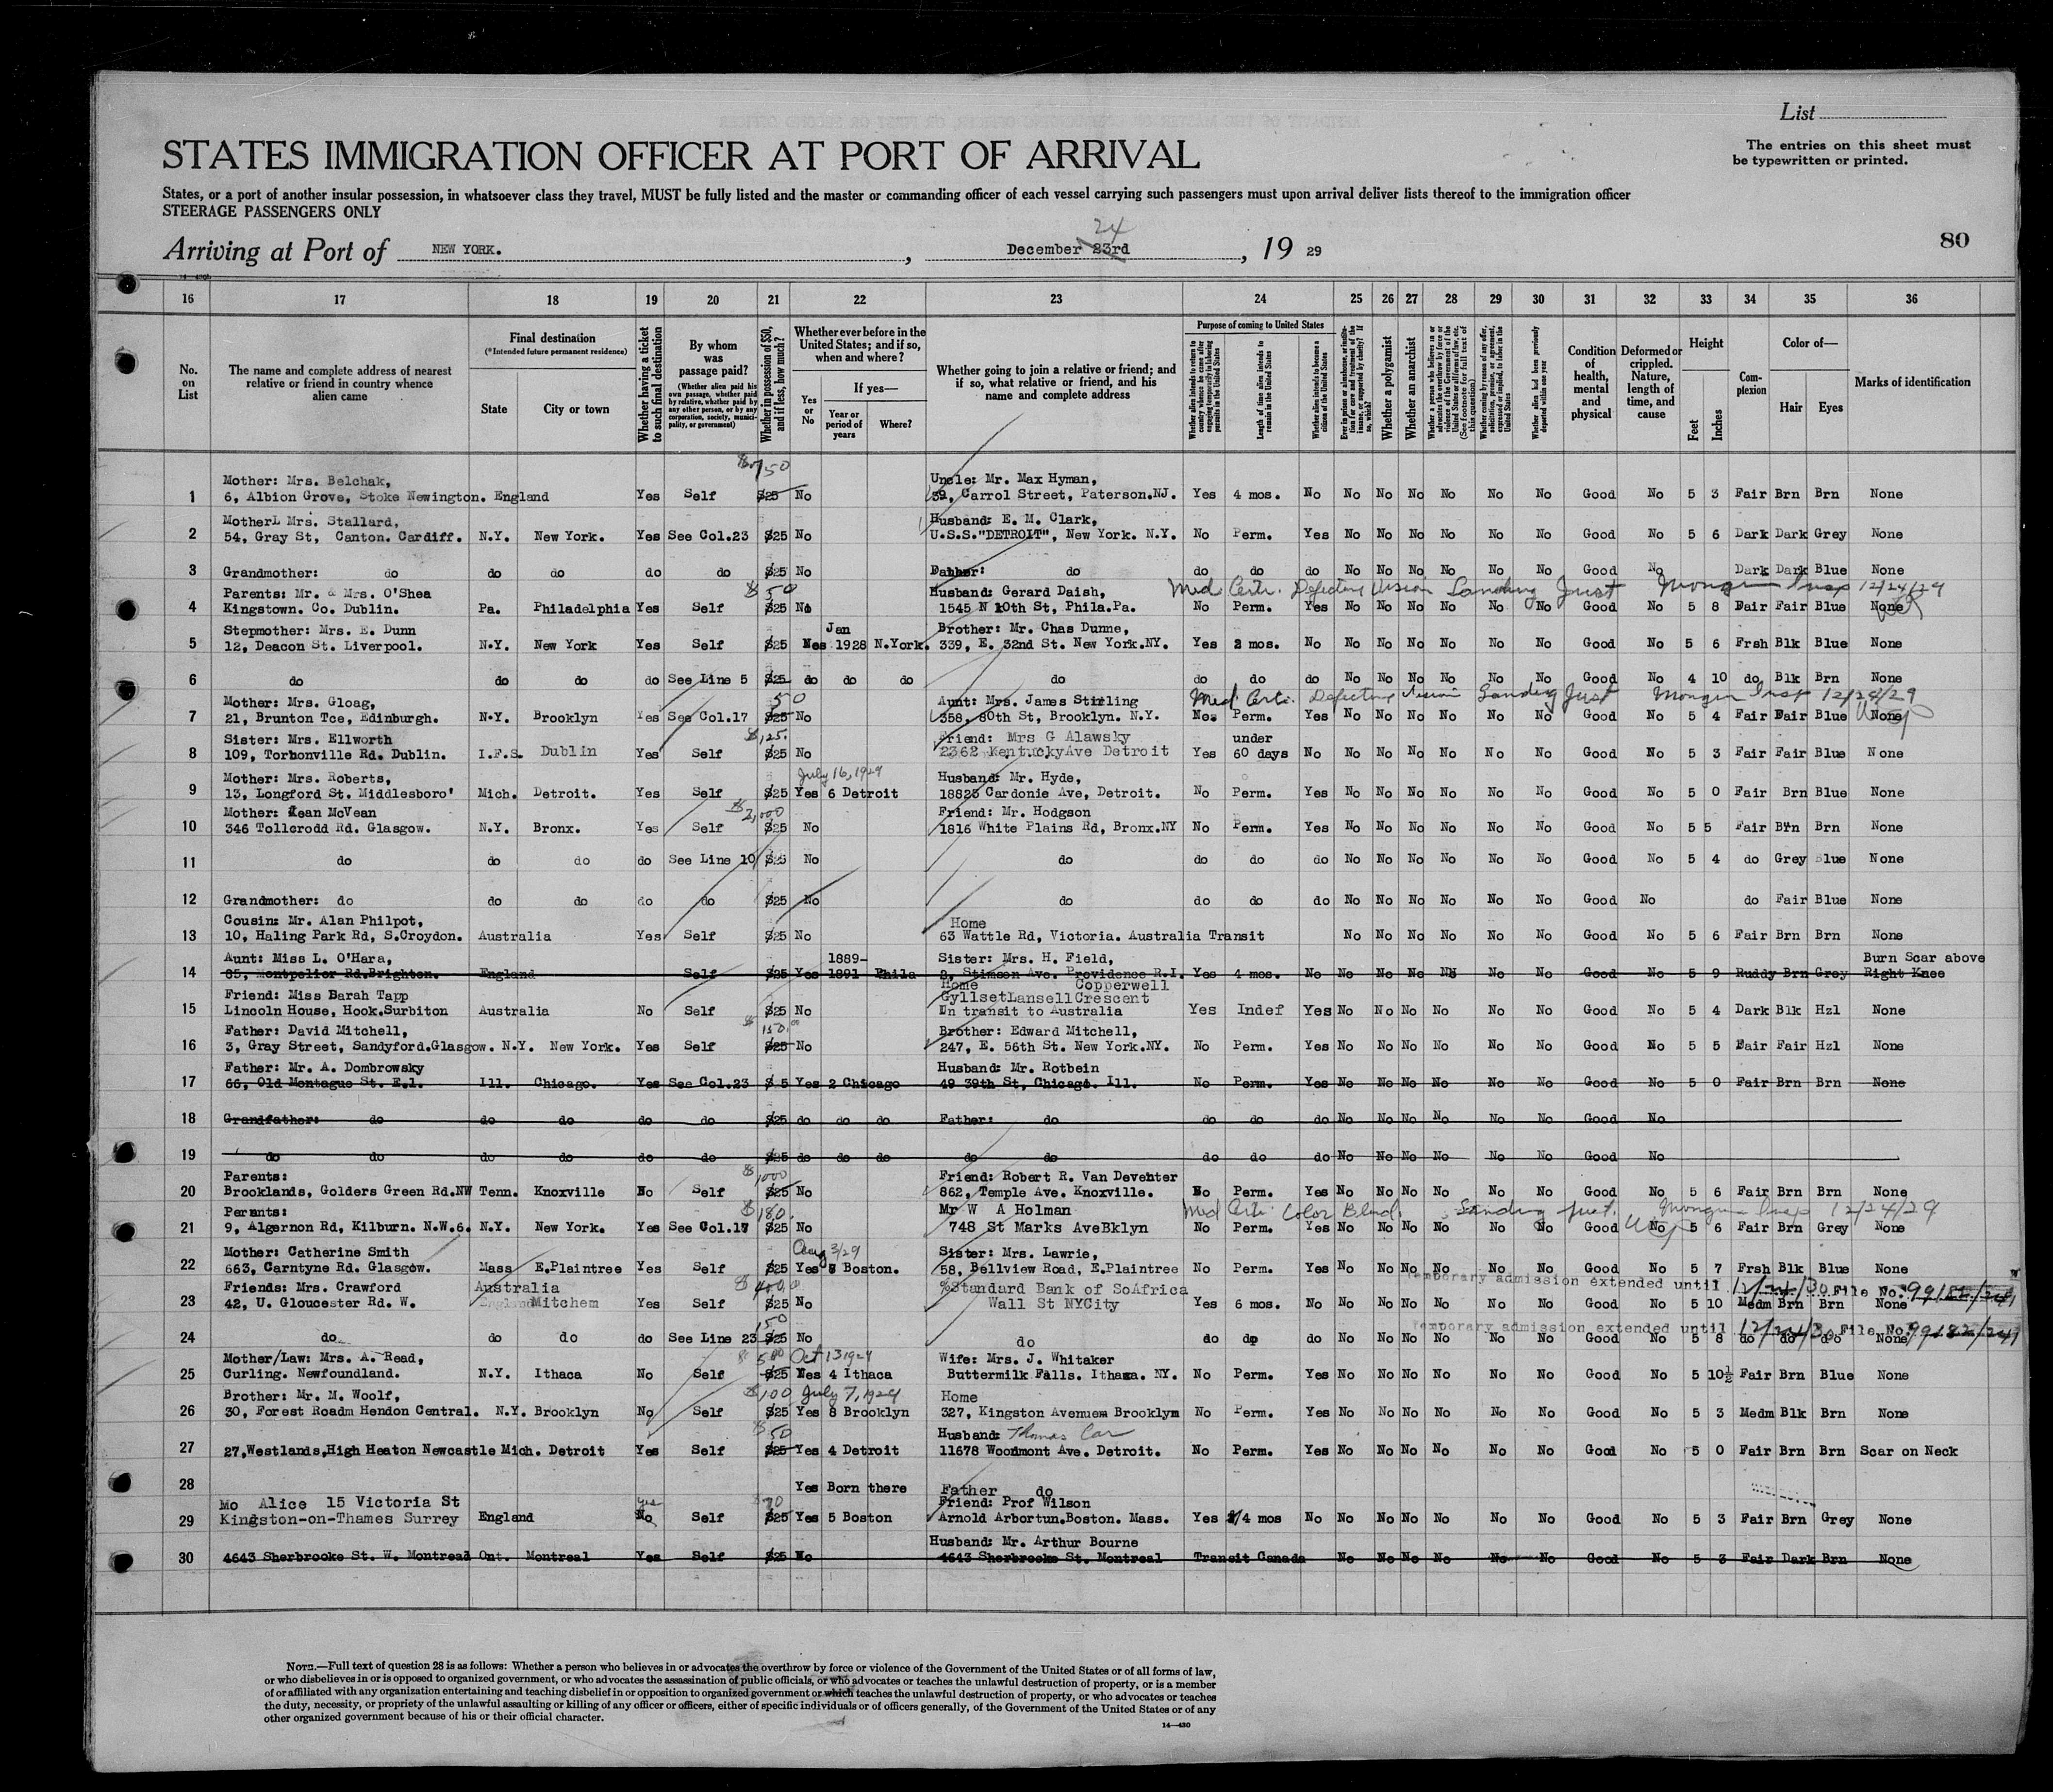 List
The entries on this sheet must
be typewritten or printed.
STATES IMMIGRATION OFFICER AT PORT OF ARRIVAL
States, or a port of another insular possession, in whatsoever class they travel, MUST be fully listed and the master or commanding officer of each vessel carrying such passengers must upon arrival deliver lists thereof to the immigration officer
STEERAGE PASSENGERS ONLY
24
Arriving at Port of NEW YORK. , December 23rd , 19 29
80
16 17 18 19 20 21 22 23 24 25 26 27 28 29 30 31 32 33 34 35 36
No. on List
The name and complete address of nearest relative or friend in country whence alien came
Final destination
(*Intended future permanent residence)
State
City or town
Whether having a ticket to such final destination
By whom was passage paid?
(Whether alien paid his own passage, whether paid by relative, whether paid by any other person, or by any corporation, society, municipality, or government)
Whether in possession of $50, and if less, how much?
Whether ever before in the United States; and if so, when and where?
If yes—
Yes or No
Year or period of years
Where?
Whether going to join a relative or friend; and if so, what relative or friend, and his name and complete address
Purpose of coming to United States
Length of time alien intends to remain in the United States
Whether alien intends to become a citizen of the United States
Whether a polygamist
Whether an anarchist
Whether alien had been previously deported within one year
Condition of health, mental and physical
Deformed or crippled. Nature, length of time, and cause
Height
Feet
Inches
Complexion
Color of—
Hair
Eyes
Marks of identification
$ 150
Mother: Mrs. Belchak, Uncle: Mr. Max Hyman,
1 6, Albion Grove, Stoke Newington. England Yes Self $25 No 39, Carrol Street, Paterson.NJ. Yes 4 mos. No No No No No No No Good No 5 3 Fair Brn Brn None
MotherL Mrs. Stallard, Husband: E. M. Clark,
2 54, Gray St, Canton. Cardiff. N.Y. New York. Yes See Col.23 $25 No U.S.S."DETROIT", New York. N.Y. No Perm. Yes No No No No No No Good No 5 6 Dark Dark Grey None
3 Grandmother: do do do do do $25 No Father: do do do do No No No No No No Good No Dark Dark Blue None
Parents: Mr. & Mrs. O'Shea $ 50 Husband: Gerard Daish, Med. Certi. Defective Vision Landing Just 12/24/29
4 Kingstown. Co. Dublin. Pa. Philadelphia Yes Self $25 No 1545 N 10th St, Phila.Pa. No Perm. Yes No No No No No No Good No 5 8 Fair Fair Blue None
Stepmother: Mrs. E. Dunn Jan Brother: Mr. Chas Dunne,
5 12, Deacon St. Liverpool. N.Y. New York Yes Self $25 Yes 1928 N.York. 339, E. 32nd St. New York.NY. Yes 2 mos. No No No No No No No Good No 5 6 Frsh Blk Blue None
6 do do do do See Line 5 $25 do do do do do do do No No No No No No Good No 4 10 do Blk Brn None
Mother: Mrs. Gloag, 50 Aunt: Mrs. James Stirling Med. Certi. Defective vision Landing Just 12/24/29
7 21, Brunton Tce, Edinburgh. N.Y. Brooklyn Yes See Col.17 $25 No 358, 80th St, Brooklyn. N.Y. No. Perm. Yes No No No No No No Good No 5 4 Fair Fair Blue None
Sister: Mrs. Ellworth $125. Friend: Mrs G Alawsky under
8 109, Torbonville Rd. Dublin. I.F.S. Dublin Yes Self $25 No 2362 KentuckyAve Detroit Yes 60 days No No No No No No No Good No 5 3 Fair Fair Blue None
Mother: Mrs. Roberts, July 16, 1929 Husband: Mr. Hyde,
9 13, Longford St. Middlesboro' Mich. Detroit. Yes Self $25 Yes 6 Detroit 18825 Cardonie Ave, Detroit. No Perm. Yes No No No No No No Good No 5 0 Fair Brn Blue None
Mother: Jean McVean $ 2,000 Friend: Mr. Hodgson
10 346 Tollcrodd Rd. Glasgow. N.Y. Bronx. Yes Self $25 No 1816 White Plains Rd, Bronx.NY No Perm. Yes No No No No No No Good No 5 5 Fair Brn Brn None
11 do do do do See Line 10 $25 No do do do do No No No No No No Good No 5 4 do Grey Blue None
12 Grandmother: do do do do do $25 No do do do do No No No No No No Good No do Fair Blue None
Cousin: Mr. Alan Philpot, Home
13 10, Haling Park Rd, S.Croydon. Australia Yes Self $25 No 63 Wattle Rd, Victoria. Australia Transit No No No No No No Good No 5 6 Fair Brn Brn None
Aunt: Miss L. O'Hara, 1889- Sister: Mrs. H. Field, Burn Scar above
14 85, Montpelier Rd.Brighton. England Self $25 Yes 1891 Phila 2, Stimson Ave. Providence R.I. Yes 4 mos. No No No No No No No Good No 5 9 Ruddy Brn Grey Right Knee
Home Copperwell
Friend: Miss Barah Tapp GyllsetLansellCrescent
15 Lincoln House, Hook.Surbiton Australia No Self $25 No In transit to Australia Yes Indef Yes No No No No No No Good No 5 4 Dark Blk Hzl None
Father: David Mitchell, $ 150.00 Brother: Edward Mitchell,
16 3, Gray Street, Sandyford.Glasgow. N.Y. New York. Yes Self $25 No 247, E. 56th St. New York.NY. No Perm. Yes No No No No No No Good No 5 5 Fair Fair Hzl None
Father: Mr. A. Dombrowsky Husband: Mr. Rotbein
17 66, Old Montague St. E.1. Ill. Chicago. Yes See Col.23 $ 5 Yes 2 Chicago 49 39th St, Chicago. Ill. No Perm. Yes No No No No No No Good No 5 0 Fair Brn Brn None
18 Grandfather: do do do do do $25 do do do Father: do do do do No No No No No No Good No
19 do do do do do do $25 do do do do do do do do No No No No No No Good No
Parents: $ 1000 Friend: Robert R. Van Deventer
20 Brooklands, Golders Green Rd.NW Tenn. Knoxville No Self $25 No 862, Temple Ave. Knoxville. No Perm. Yes No No No No No No Good No 5 6 Fair Brn Brn None
Perants: $ 180. Mr W A Holman Med Certi. Color Blind. Landing just. 12/24/29
21 9, Algernon Rd, Kilburn. N.W.6. N.Y. New York. Yes See Col.17 $25 No 748 St Marks AveBklyn No Perm. Yes No No No No No No Good No 5 6 Fair Brn Grey None
Mother: Catherine Smith Aug 3/29 Sister: Mrs. Lawrie,
22 663, Carntyne Rd. Glasgow. Mass E.Plaintree Yes Self $25 Yes 8 Boston. 58, Bellview Road, E.Plaintree No Perm. Yes No No No No No No Good No 5 7 Frsh Blk Blue None
Friends: Mrs. Crawford Australia $ 400.00 %Standard Bank of SoAfrica Temporary admission extended until 12/24/30 File No. 99182/241
23 42, U. Gloucester Rd. W. England Mitchem Yes Self $25 No Wall St NYCity Yes 6 mos. No No No No No No No Good No 5 10 Medm Brn Brn None
150 Temporary admission extended until 12/24/30 File No. 99182/241
24 do do do do See Line 23 $25 No do do do do No No No No No No Good No 5 8 do do do None
Mother/Law: Mrs. A. Read, $ 500 Oct 13 1929 Wife: Mrs. J. Whitaker
25 Curling. Newfoundland. N.Y. Ithaca No Self $25 Yes 4 Ithaca Buttermilk Falls. Ithaca. NY. No Perm. Yes No No No No No No Good No 5 10½ Fair Brn Blue None
Brother: Mr. M. Woolf, $100 July 7, 1929 Home
26 30, Forest Roadm Hendon Central. N.Y. Brooklyn No Self $25 Yes 8 Brooklyn 327, Kingston Avenuem Brooklym No Perm. Yes No No No No No No Good No 5 3 Medm Blk Brn None
$ 50 Husband: Thomas Car
27 27,Westlands,High Heaton Newcastle Mich. Detroit Yes Self $25 Yes 4 Detroit 11678 Woodmont Ave. Detroit. No Perm. Yes No No No No No No Good No 5 0 Fair Brn Brn Scar on Neck
28 Yes Born there Father do
Mo Alice 15 Victoria St yes $ 70 Friend: Prof Wilson
29 Kingston-on-Thames Surrey England No Self $25 Yes 5 Boston Arnold Arbortun.Boston. Mass. Yes 3/4 mos No No No No No No No Good No 5 3 Fair Brn Grey None
Husband: Mr. Arthur Bourne
30 4643 Sherbrooke St. W. Montread Ont. Montreal Yes Self $25 No 4643 Sherbrooke St. Montreal Transit Canada No No No No No No Good No 5 3 Fair Dark Brn None
NOTE.—Full text of question 28 is as follows: Whether a person who believes in or advocates the overthrow by force or violence of the Government of the United States or of all forms of law,
or who disbelieves in or is opposed to organized government, or who advocates the assassination of public officials, or who advocates or teaches the unlawful destruction of property, or is a member
of or affiliated with any organization entertaining and teaching disbelief in or opposition to organized government or which teaches the unlawful destruction of property, or who advocates or teaches
the duty, necessity, or propriety of the unlawful assaulting or killing of any officer or officers, either of specific individuals or of officers generally, of the Government of the United States or of any
other organized government because of his or their official character.
14—430